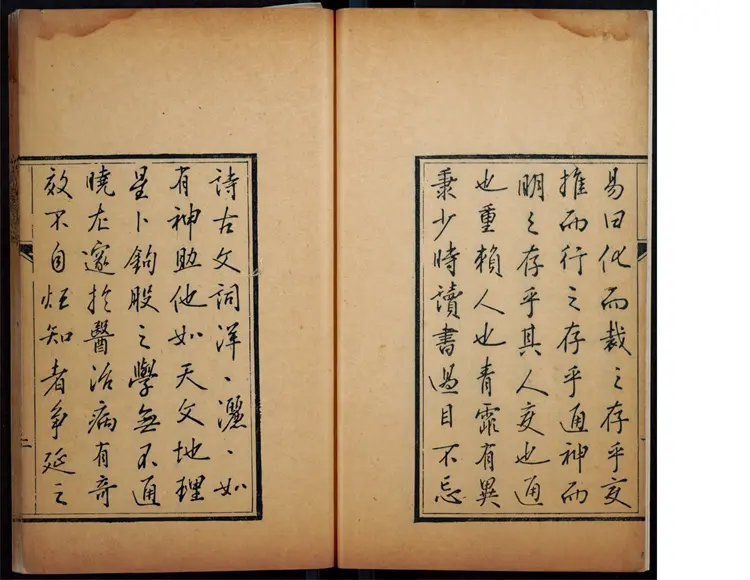 易曰化而裁之存乎变
推而行之存乎通神而
明之存乎其人变也通
也重赖人也青霏有異
秉少時讀書過目不忘
詩古文詞洋丶灑丶如
有神助他如天文地理
星卜鉤股之學無不通
曉尤邃於醫治病有奇
效不自炫知者争延之
二